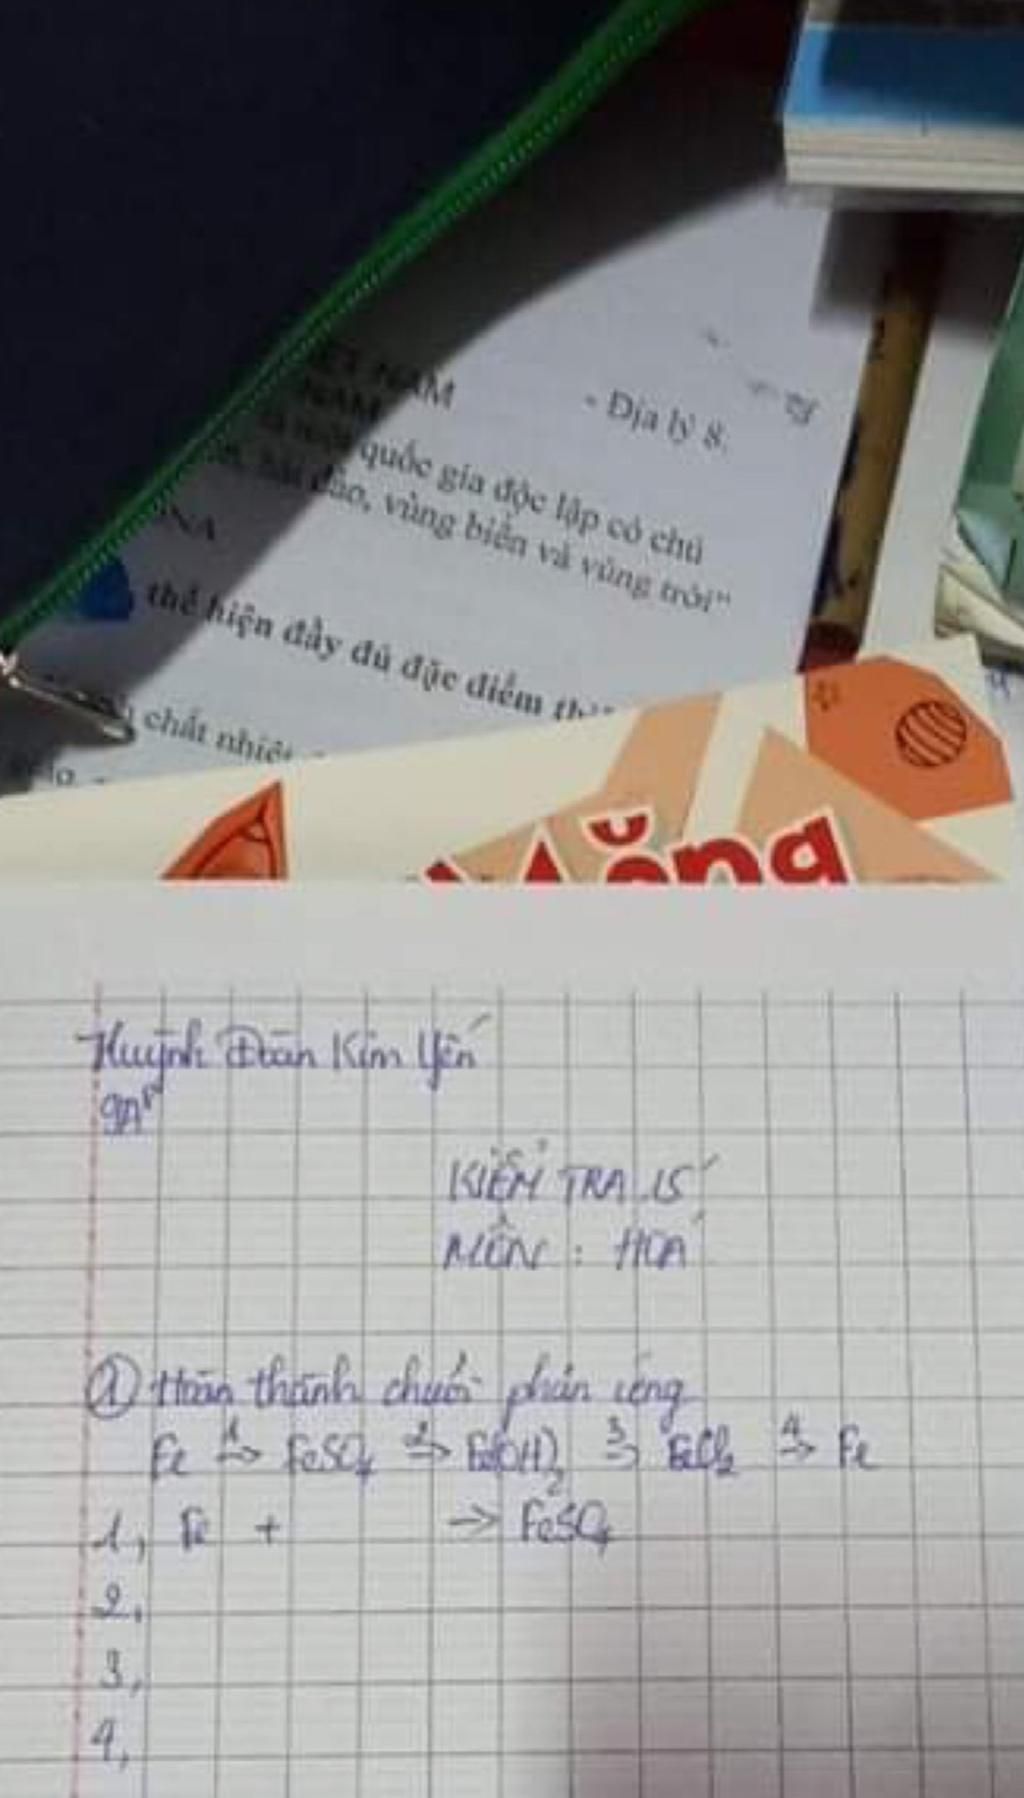 NAM
- Địa lý 8.
quốc gia độc lập có chủ
đảo, vùng biển và vùng trời"
NA
thể hiện đầy đủ đặc điểm
chất nhiệt
Huỳnh Đoàn Kim Yến
KIỂM TRA 15'
MÔN : HOÁ
① Hoàn thành chuỗi phản ứng
Fe 1→ FeSO4 2→ Fe(OH)2 3→ FeCl2 4→ Fe
1, Fe + → FeSO4
2,
3,
4,